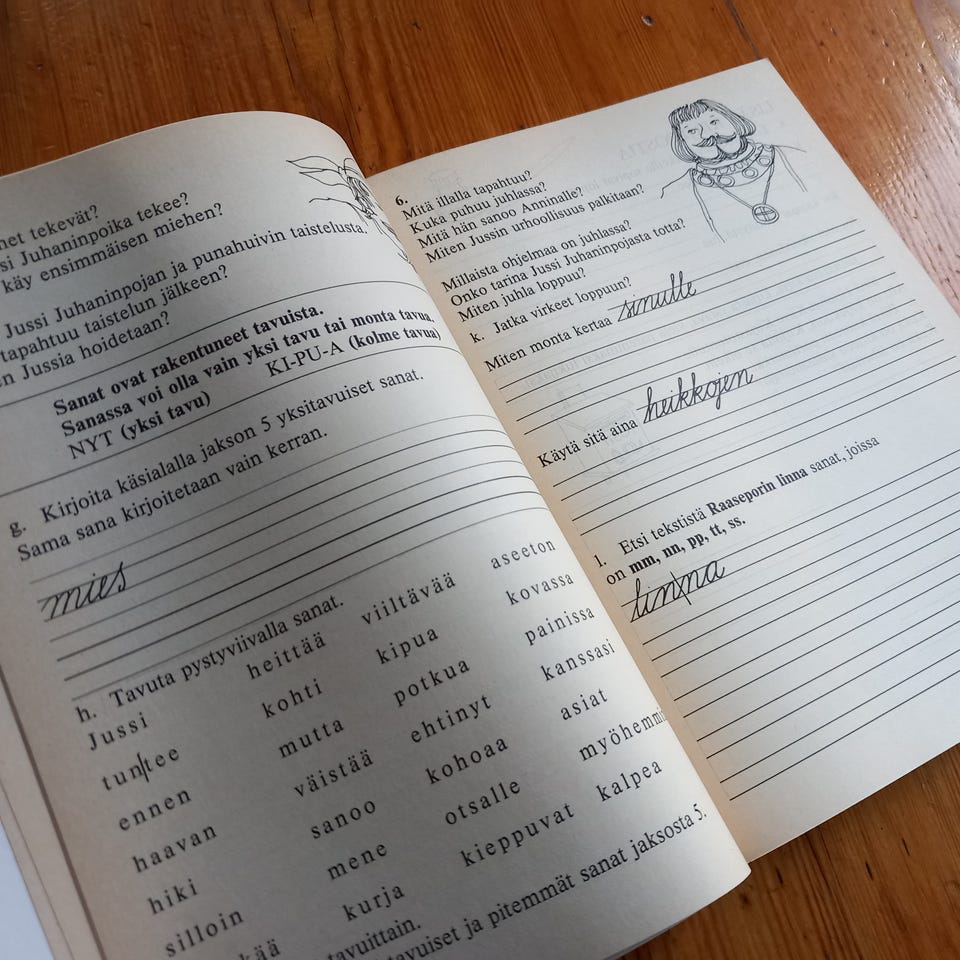 net tekevät?
si Juhaninpoika tekee?
käy ensimmäisen miehen?
Jussi Juhaninpojan ja punahuivin taistelusta?
tapahtuu taistelun jälkeen?
en Jussia hoidetaan?
Sanat ovat rakentuneet tavuista.
Sanassa voi olla vain yksi tavu tai monta tavua.
NYT (yksi tavu) KI-PU-A (kolme tavua)
g. Kirjoita käsialalla jakson 5 yksitavuiset sanat.
Sama sana kirjoitetaan vain kerran.
mies
h. Tavuta pystyviivalla sanat.
Jussi heittää viiltävää aseeton
tun|tee kohti kipua kovassa
ennen mutta potkua painissa
haavan väistää ehtinyt kanssasi
hiki sanoo kohoaa asiat
silloin mene otsalle myöhemmi
kää kurja kieppuvat kalpea
tavuittain.
tavuiset ja pitemmät sanat jaksosta 5.
6.
Mitä illalla tapahtuu?
Kuka puhuu juhlassa?
Mitä hän sanoo Anninalle?
Miten Jussin urhoollisuus palkitaan?
Millaista ohjelmaa on juhlassa?
Onko tarina Jussi Juhaninpojasta totta?
Miten juhla loppuu?
k. Jatka virkeet loppuun?
Miten monta kertaa sinulle
Käytä sitä aina heikkojen
l. Etsi tekstistä Raaseporin linna sanat, joissa
on mm, nn, pp, tt, ss.
lin|na